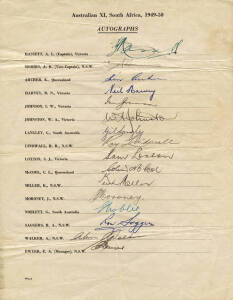 Australian XI, South Africa, 1949-50
AUTOGRAPHS
HASSETT, A. L. (Captain), Victoria
MORRIS, A. R. (Vice-Captain), N.S.W.
ARCHER, K. Queensland
HARVEY, R. N., Victoria Neil Harvey
JOHNSON, I. W., Victoria Ian Johnson
JOHNSTON, W. A., Victoria W A Johnston
LANGLEY, G. South Australia Gil Langley
LINDWALL, R. R., N.S.W. Ray Lindwall
LOXTON, S. J., Victoria Sam Loxton
McCOOL, C. L., Queensland Colin McCool
MILLER, K., N.S.W.
MORONEY, J., N.S.W. Moroney
NOBLET, G., South Australia Noblet
SAGGERS, R. A., N.S.W. Ron Saggers
WALKER, A., N.S.W. Alan Walker
DWYER, E. A. (Manager), N.S.W.